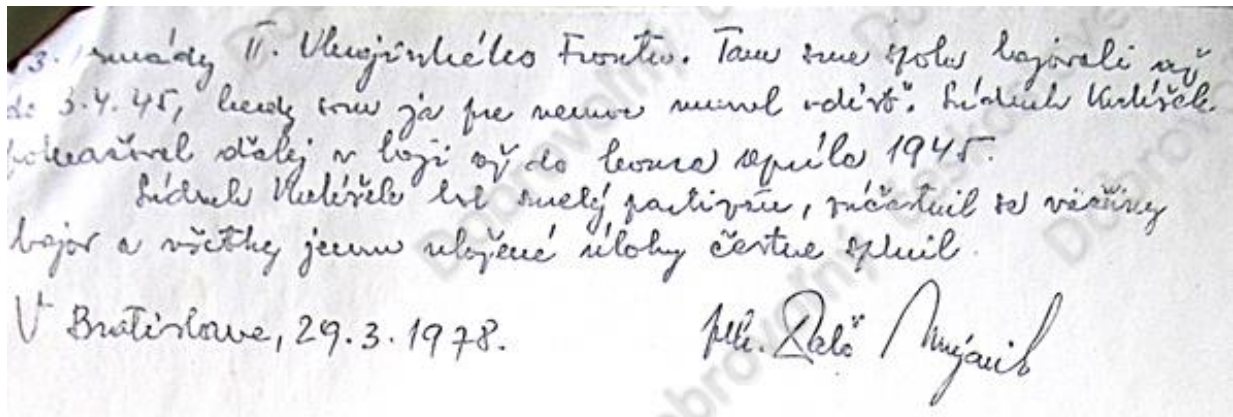 3. armády II. Ukrajinského Frontu. Tam sme spolu bojovali až
do 3.4.45, kedy som ja pre nemoc musel odísť. Súdruh Kulíšek
pokračoval ďalej v boji až do konca apríla 1945.
Súdruh Kulíšek bol smelý partizán, súčastnil sa väčšiny
bojov a všetky jemu uložené úlohy čestne splnil.
V Bratislave, 29.3.1978.
plk. Mujanik